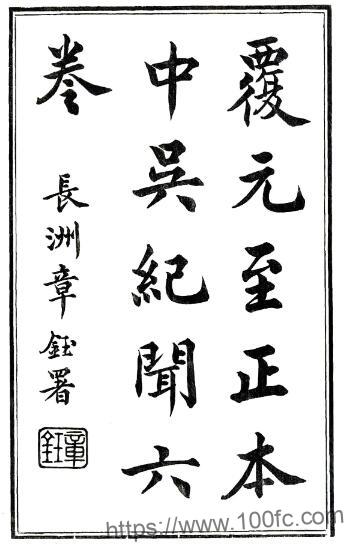 覆元至正本
中吳紀聞六
卷
長洲章鈺署
章鈺
https://www.100fc.com